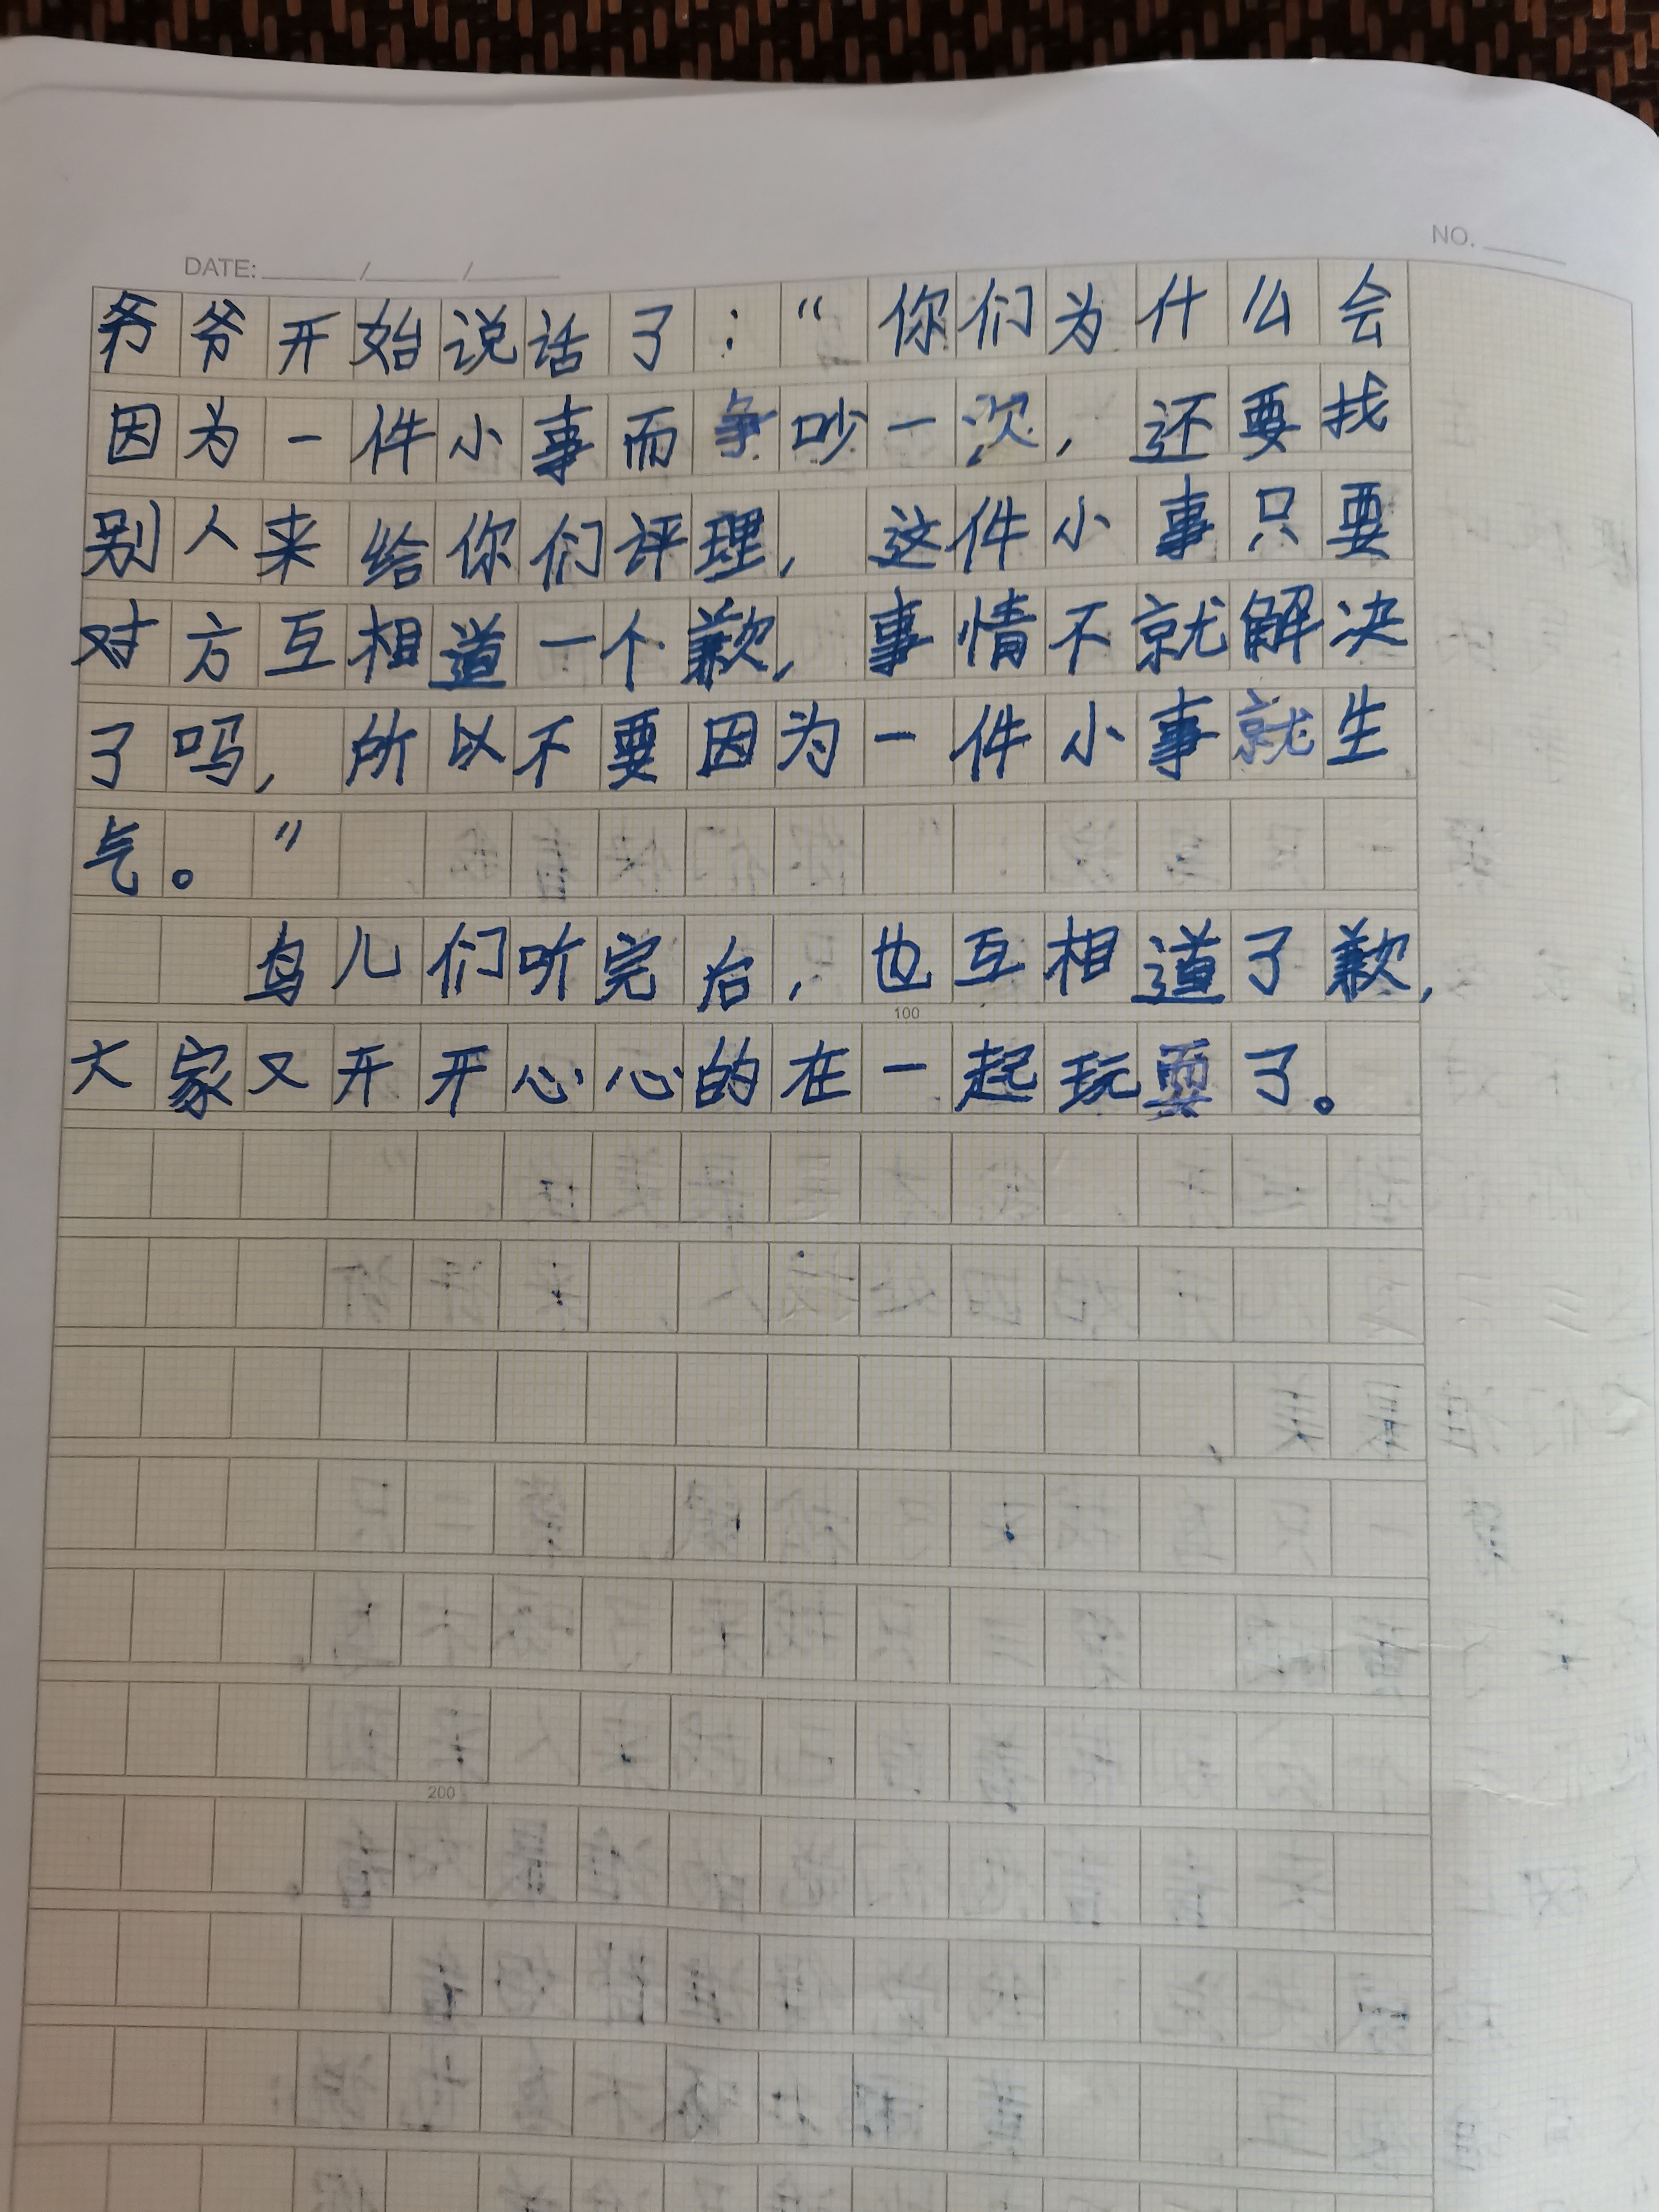 DATE: / /
NO.
爷爷开始说话了：“你们为什么会
因为一件小事而争吵一次，还要找
别人来给你们评理，这件小事只要
对方互相道一个歉，事情不就解决
了吗，所以不要因为一件小事就生
气。”
鸟儿们听完后，也互相道了歉，
100
大家又开开心心的在一起玩耍了。
200